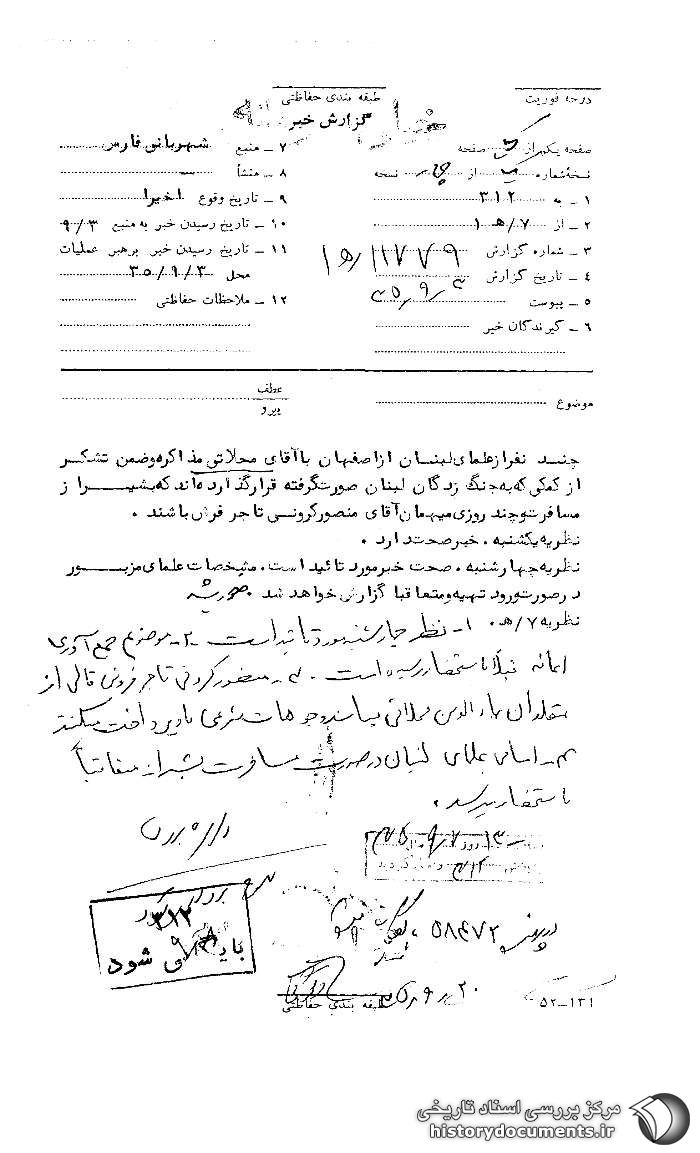 درجه فوریت
طبقه بندی حفاظتی
گزارش خبر
صفحه یکم از صفحه
نسخه شماره از چهار نسخه
۱ - به ۳۱۲
۲ - از ۷/ هـ ۱
۳ - شماره گزارش ۱۱۷۷۹/ هـ ۱
۴ - تاریخ گزارش ۳۵/۹/۳
۵ - پیوست
۶ - گیرندگان خبر
۷ - منبع شهربانی فارس
۸ - منشأ
۹ - تاریخ وقوع اخیرا
۱۰ - تاریخ رسیدن خبر به منبع ۹/۳
۱۱ - تاریخ رسیدن خبر برهبر عملیات
محل ۳۵/۹/۳
۱۲ - ملاحظات حفاظتی
موضوع
عطف
پیرو
چند نفر از علمای لبنان از اصفهان با آقای محلاتی مذاکره و ضمن تشکر
از کمکی که به جنگ زدگان لبنان صورت گرفته قرار گذارده اند که بشیراز
مسافرت و چند روزی میهمان آقای منصور کرونی تاجر فرش باشند .
نظریه یکشنبه . خبر صحت دارد .
نظریه چهارشنبه . صحت خبر مورد تائید است . مشخصات علمای مزبور
در صورت ورود تهیه و متعاقبا گزارش خواهد شد .
نظریه ۷/ هـ ۱- نظر چهارشنبه مورد تائید است ۲- موضوع جمع آوری
اعانه قبلا باستحضار رسیده است . ۳- منصور کرونی تاجر فروش قالی از
مقلدان بهاءالدین محلاتی میباشد و وجوهات شرعی باو پرداخت میکند
۴- اسامی علمای لبنان در صورت مسافرت بشیراز متعاقباً
باستحضار میرسد .
۳۱۲
بایگانی شود
در پرونده ۵۸۴۷۲
۳۰/۹/۳۵
طبقه بندی حفاظتی
۵۲-۱۳۱
مرکز بررسی اسناد تاریخی
historydocuments.ir